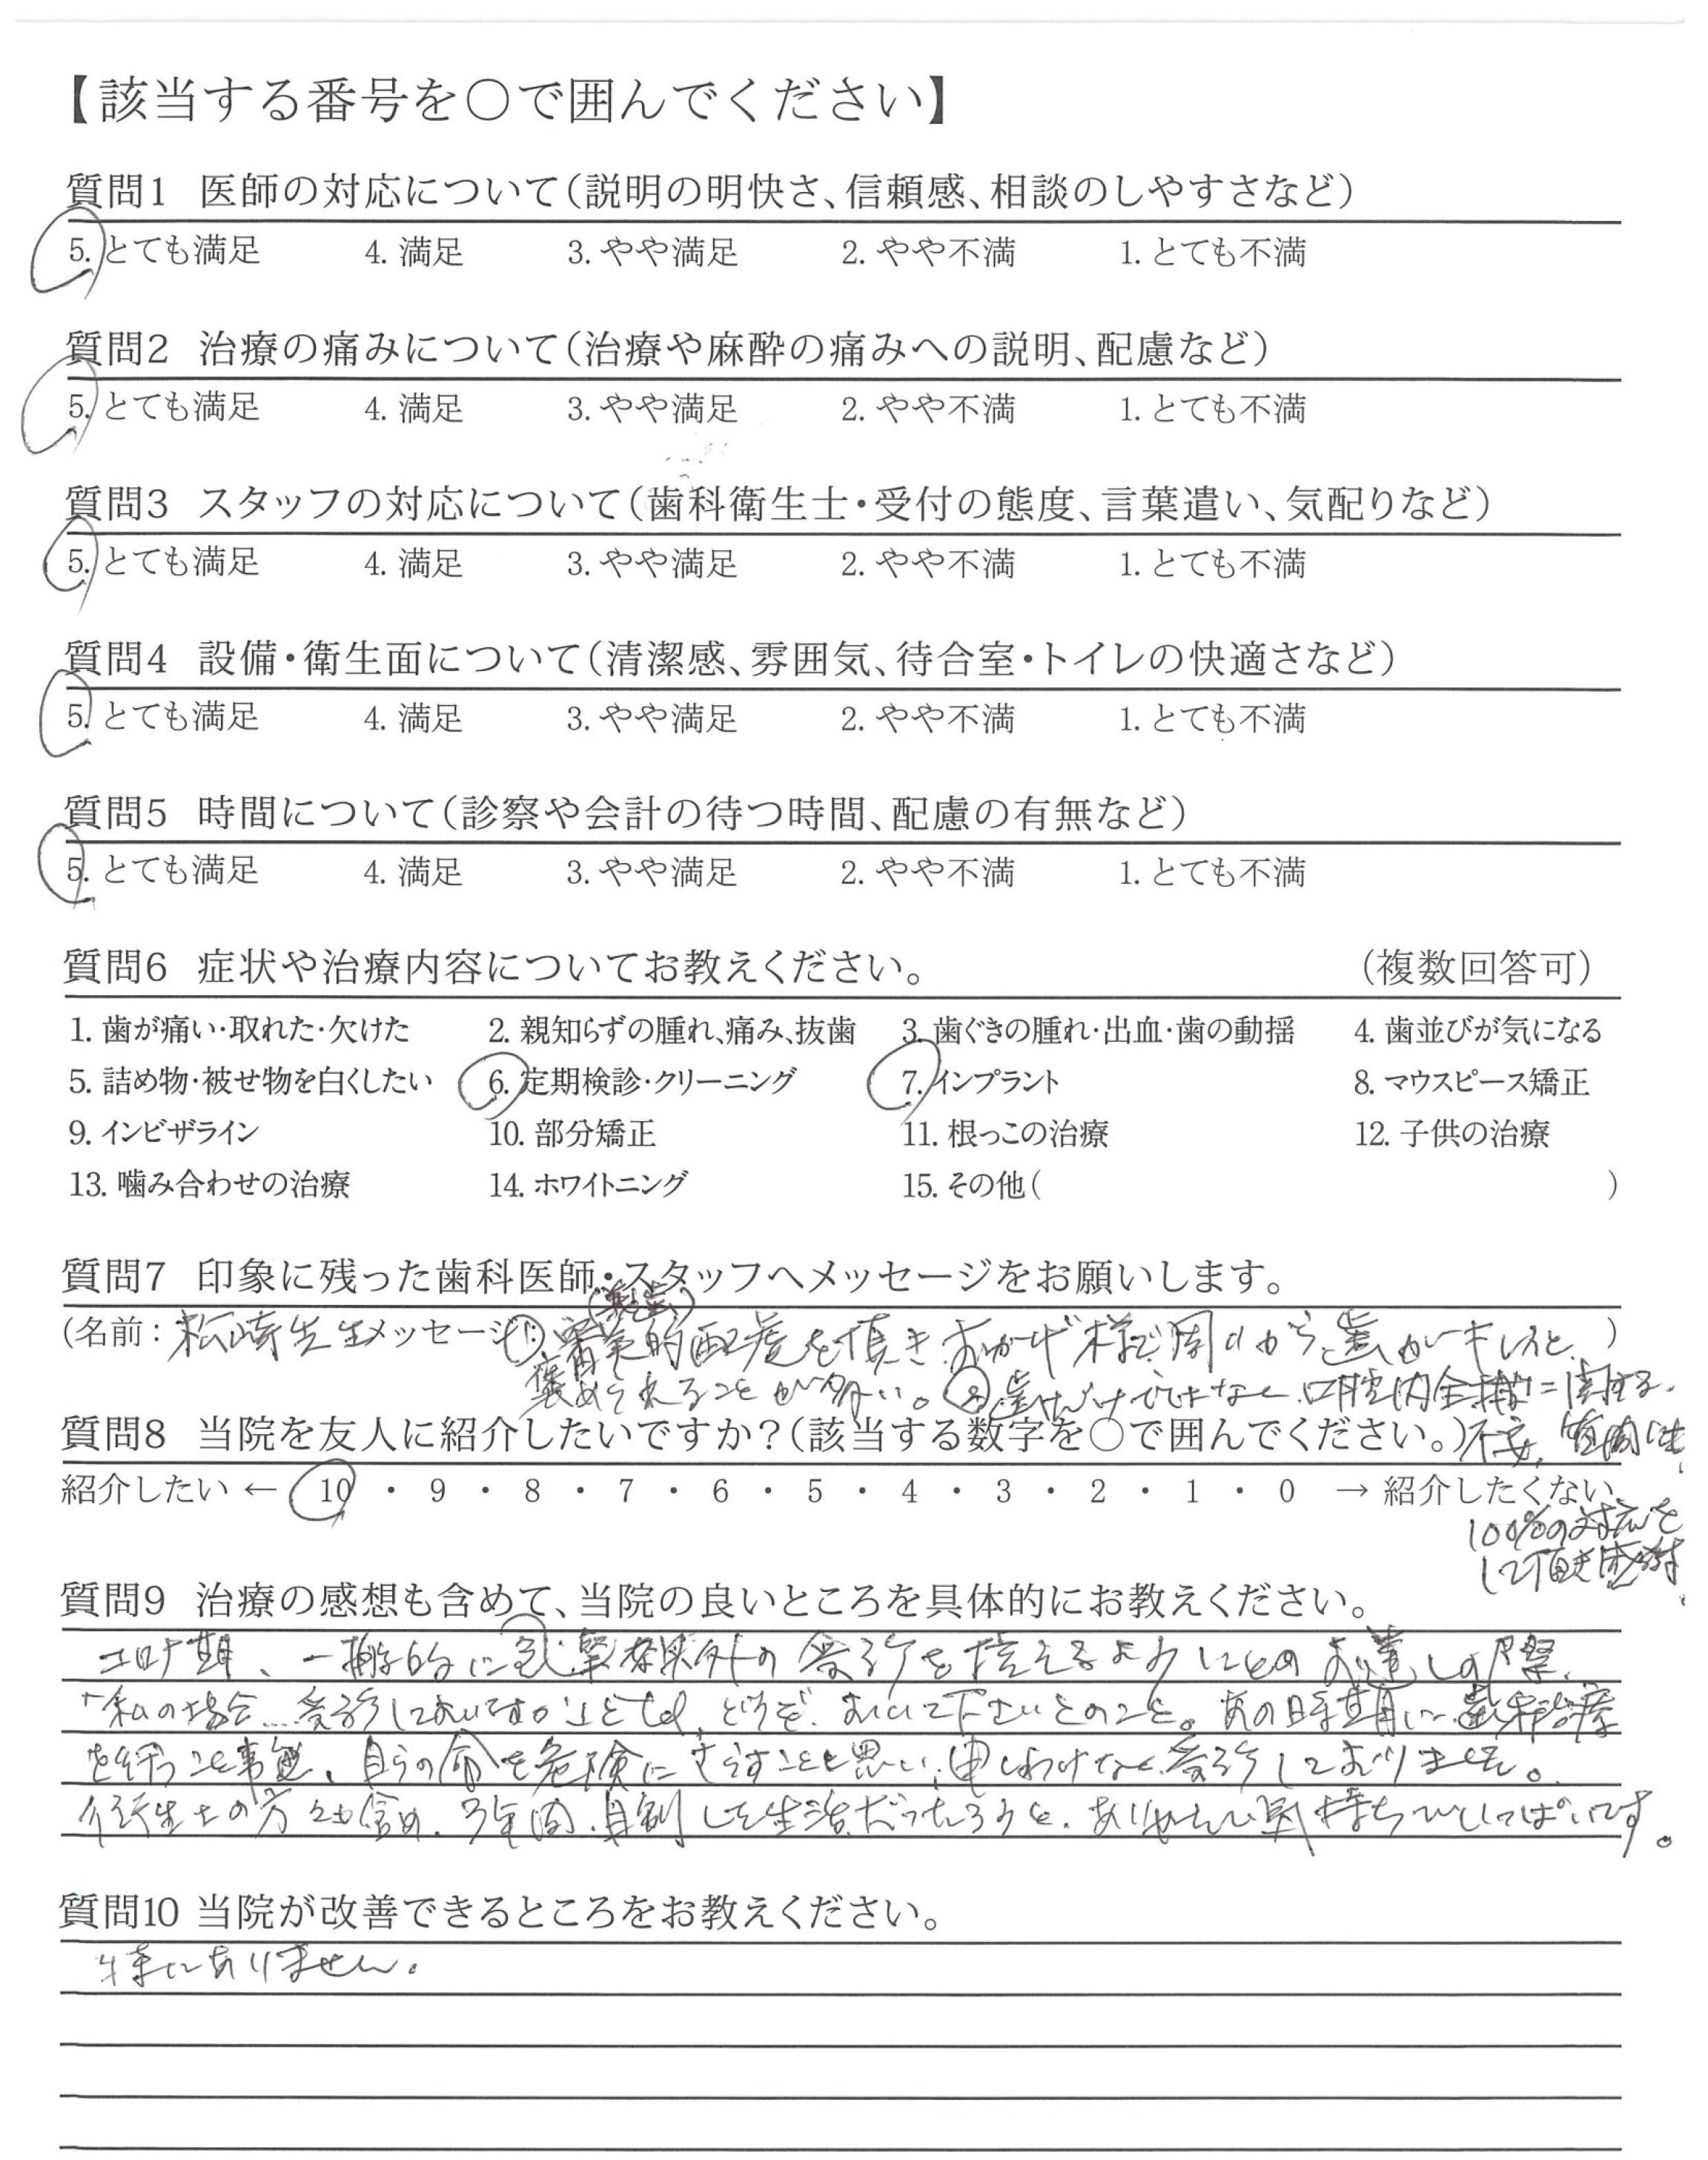 【該当する番号を○で囲んでください】
質問1 医師の対応について(説明の明快さ、信頼感、相談のしやすさなど)
5. とても満足 4. 満足 3. やや満足 2. やや不満 1. とても不満
質問2 治療の痛みについて(治療や麻酔の痛みへの説明、配慮など)
5. とても満足 4. 満足 3. やや満足 2. やや不満 1. とても不満
質問3 スタッフの対応について(歯科衛生士・受付の態度、言葉遣い、気配りなど)
5. とても満足 4. 満足 3. やや満足 2. やや不満 1. とても不満
質問4 設備・衛生面について(清潔感、雰囲気、待合室・トイレの快適さなど)
5. とても満足 4. 満足 3. やや満足 2. やや不満 1. とても不満
質問5 時間について(診察や会計の待つ時間、配慮の有無など)
5. とても満足 4. 満足 3. やや満足 2. やや不満 1. とても不満
質問6 症状や治療内容についてお教えください。 (複数回答可)
1. 歯が痛い・取れた・欠けた 2. 親知らずの腫れ、痛み、抜歯 3. 歯ぐきの腫れ・出血・歯の動揺 4. 歯並びが気になる
5. 詰め物・被せ物を白くしたい 6. 定期検診・クリーニング 7. インプラント 8. マウスピース矯正
9. インビザライン 10. 部分矯正 11. 根っこの治療 12. 子供の治療
13. 噛み合わせの治療 14. ホワイトニング 15. その他( )
質問7 印象に残った歯科医師・スタッフへメッセージをお願いします。
(名前: 松崎先生 メッセージ: ① 審美的配慮を頂き、おかげ様で周りから歯がキレイと、)
褒められることが多い。② 歯だけでなく、口腔内全般に関する、
質問8 当院を友人に紹介したいですか?(該当する数字を○で囲んでください。) 不安、質問にも
紹介したい ← 10 ・ 9 ・ 8 ・ 7 ・ 6 ・ 5 ・ 4 ・ 3 ・ 2 ・ 1 ・ 0 → 紹介したくない
100%の対応を
して頂き感謝
質問9 治療の感想も含めて、当院の良いところを具体的にお教えください。
コロナ期、一般的に急、緊 以外の受診を控えるようにとのお達しの際、
「私の場合…受診してよいですか」と 、どうぞ、 下さいとのこと。あの時期に歯科治療
を行うこと事態、自らの命を危険にさらすことと思い、申しわけなく受診しておりました。
衛生士の方々も含め、3年間、自制した生活だったろうと、ありがたい気持ちでいっぱいです。
質問10 当院が改善できるところをお教えください。
特にありません。